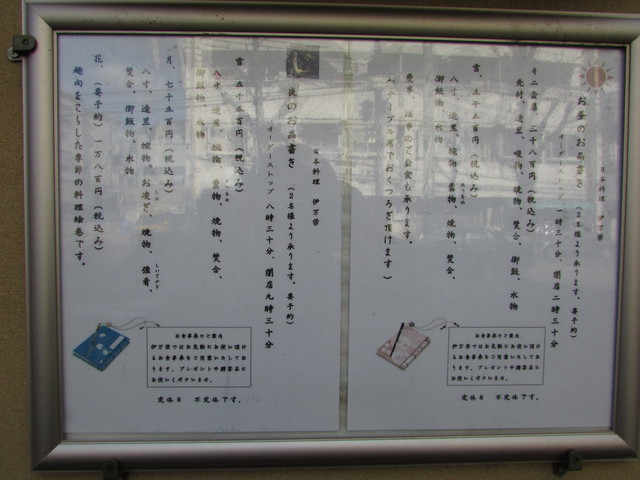 日本料理 伊万栄
お昼のお品書き (2名様より承ります。要予約)
オーダーストップ 一時三十分、閉店二時三十分
ミニ会席、二千八百円(税込み)
先付、造里、吸物、焼物、焚合、御飯、水物
雪、五千五百円(税込み)
八寸、造里、椀物、蓋物、焼物、焚合、
御飯物、水物
慶事、法事のご会食も承ります。
(テーブル席でおくつろぎ頂けます)
お食事券のご案内
伊万栄ではお気軽にお使い頂け
るお食事券をご用意いたしてお
ります。プレゼントや贈答品に
お使いくださいませ。
定休日 不定休です。
日本料理 伊万栄
夜のお品書き (2名様より承ります。要予約)
オーダーストップ 八時三十分、閉店九時三十分
雪、五千五百円(税込み)
八寸、造里、椀物、蓋物、焼物、焚合、
御飯物、水物
月、七千五百円(税込み)
八寸、造里、椀物、お凌ぎ、焼物、強肴、
焚合、御飯物、水物
花、(要予約)一万八百円(税込み)
趣向をこらした季節の料理絵巻です。
お食事券のご案内
伊万栄ではお気軽にお使い頂け
るお食事券をご用意いたしてお
ります。プレゼントや贈答品に
お使いくださいませ。
定休日 不定休です。